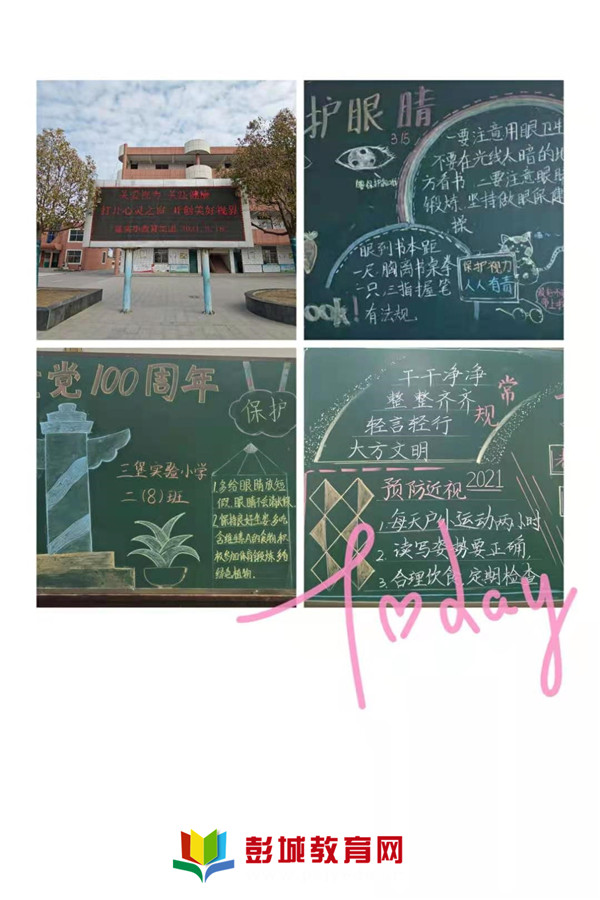 关爱视力 关注健康
打开心灵之窗 开创美好视界
护眼睛
3.15
一要注意用眼卫生
不要在光线太暗的地
方看书,二要注意眼睛
锻炼,坚持做眼保健
操
眼到书本距
一尺,胸离书桌拳
一只,三指握笔
有法规.
保护视力
人人有责
ook!
党100周年
保护
三堡实验小学
二(8)班
1.多给眼睛放短
假,眼睛不会
2.保持良好
植物.
干干净净
整整齐齐
轻言轻行
大方文明
常规
预防近视 2021
1.每天户外运动两小时
2.读写姿势要正确.
3.合理饮食,定期检查
Today
彭城教育网